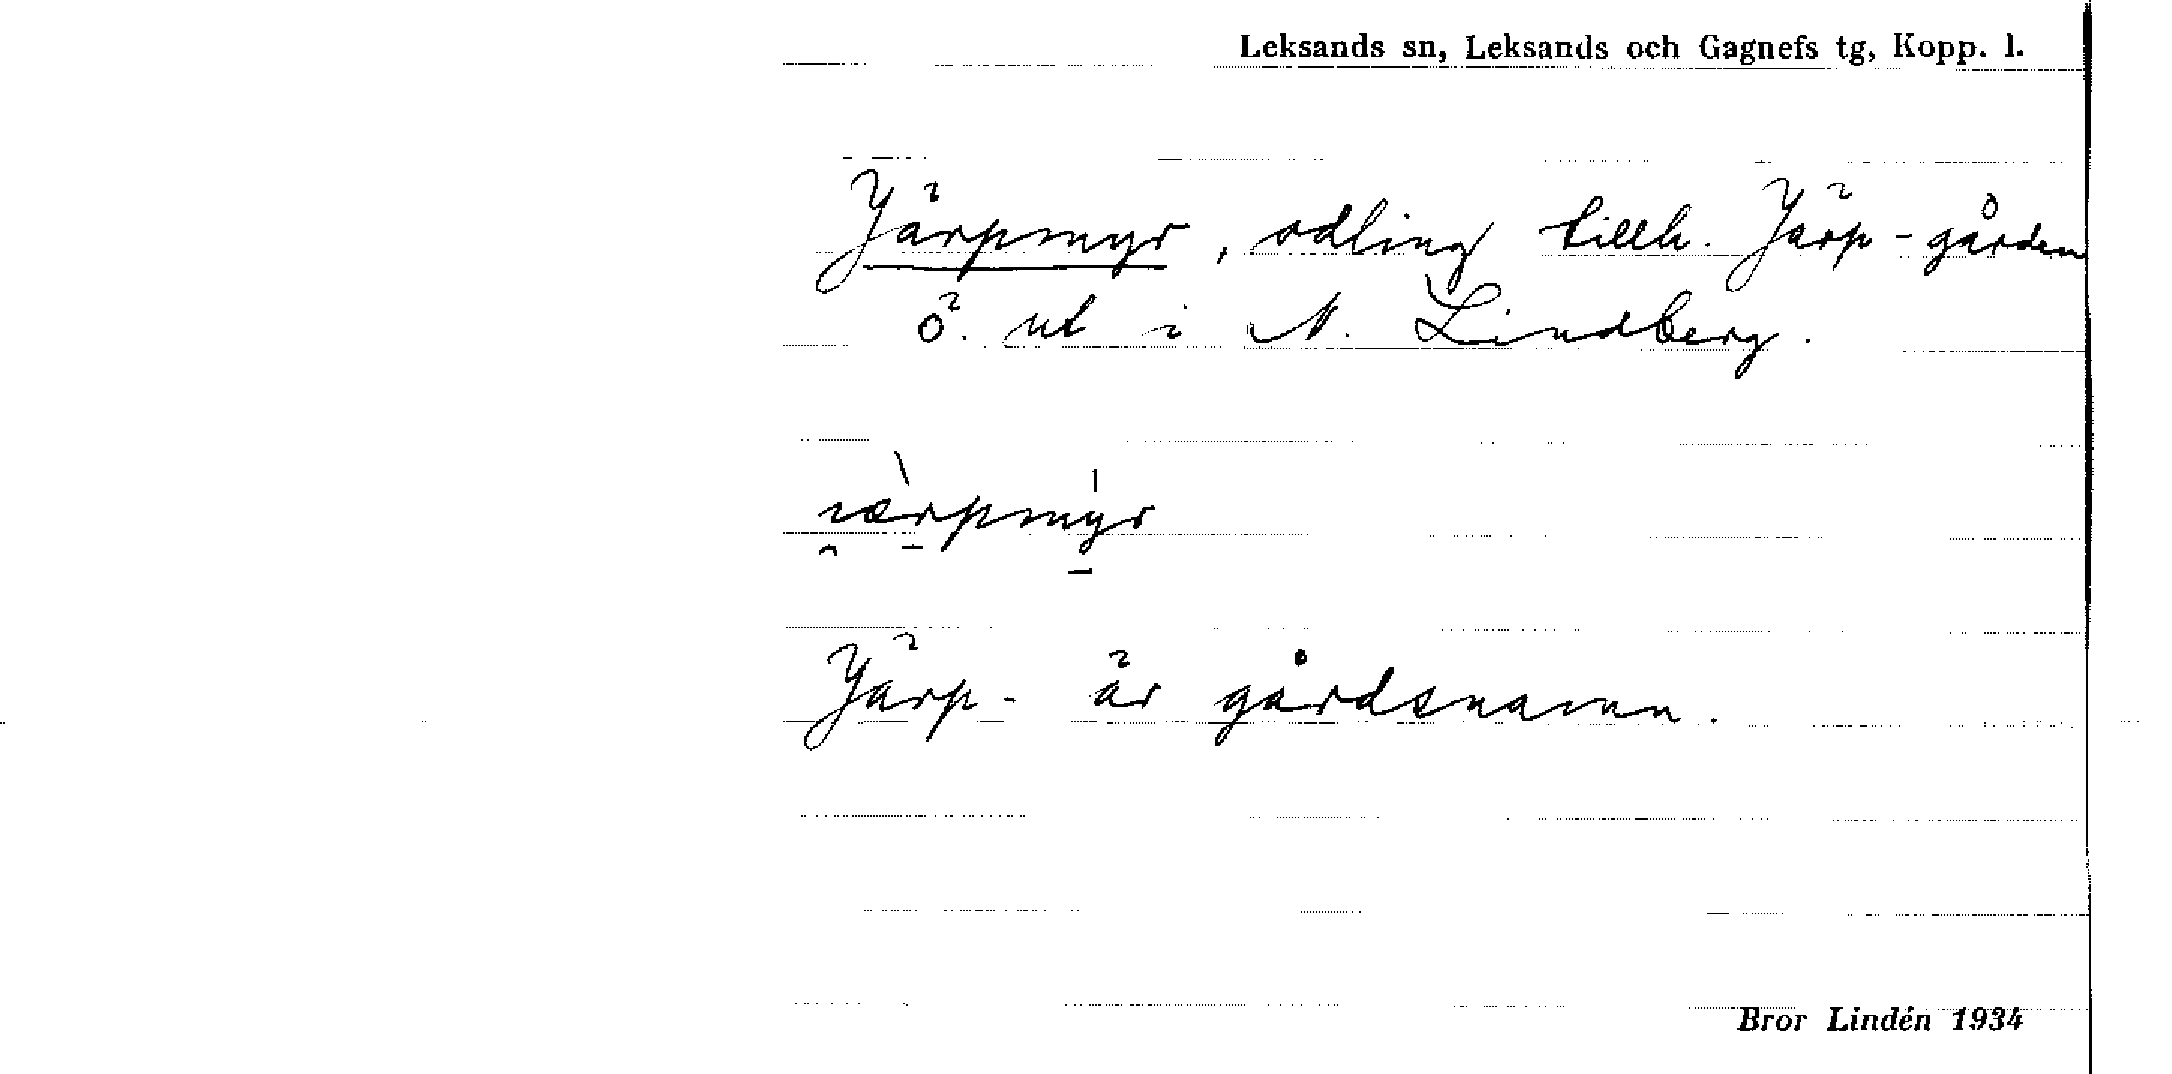 Leksands sn, Leksands och Gagnefs tg, Kopp. l.
Järpmyr, odling tillh. Järp-gården
ö. ut i N. Lindberg.
ı̯æ̀rpmy̍r
Järp- är gårdsnamn.
Bror Lindén 1934